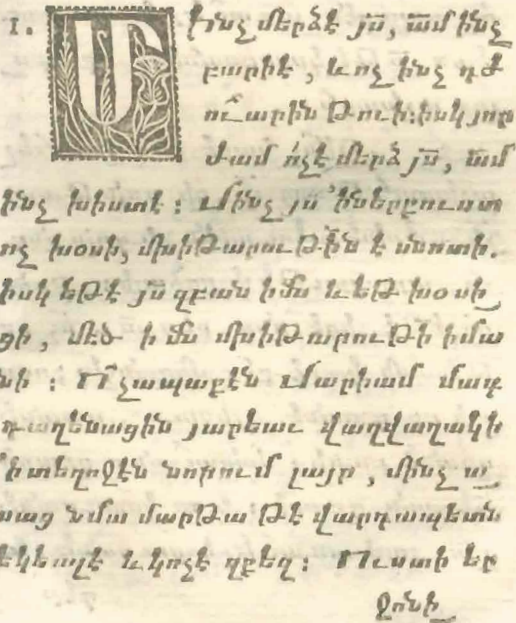 1. Մինչ մերձէ յս՟, ամ՟ ինչ
բարիէ, և ոչ ինչ դժ
ուարին թուի։ իսկ յոր
ժամ ո՛չէ մերձ յս՟, ամ՟
ինչ խիստէ։ Մինչ յս՟ ՚ի ներքուստ
ոչ խօսի, մխիթարութի՟ն է սնոտի.
իսկ եթէ յս՟ զբան իմն ևեթ խօսի
ցի, մեծ իմն մխիթարութի՟ իմա
նի։ Ո՞չ ապաքէն Մարիամ մագ
դաղենացին յարեաւ վաղվաղակի
՚ի տեղոջէն յորում լայր, մինչ ա
սաց նմա մարթա թէ վարդապետն
եկեալէ և կոչէ զքեզ։ Ուստի եր
ջանի